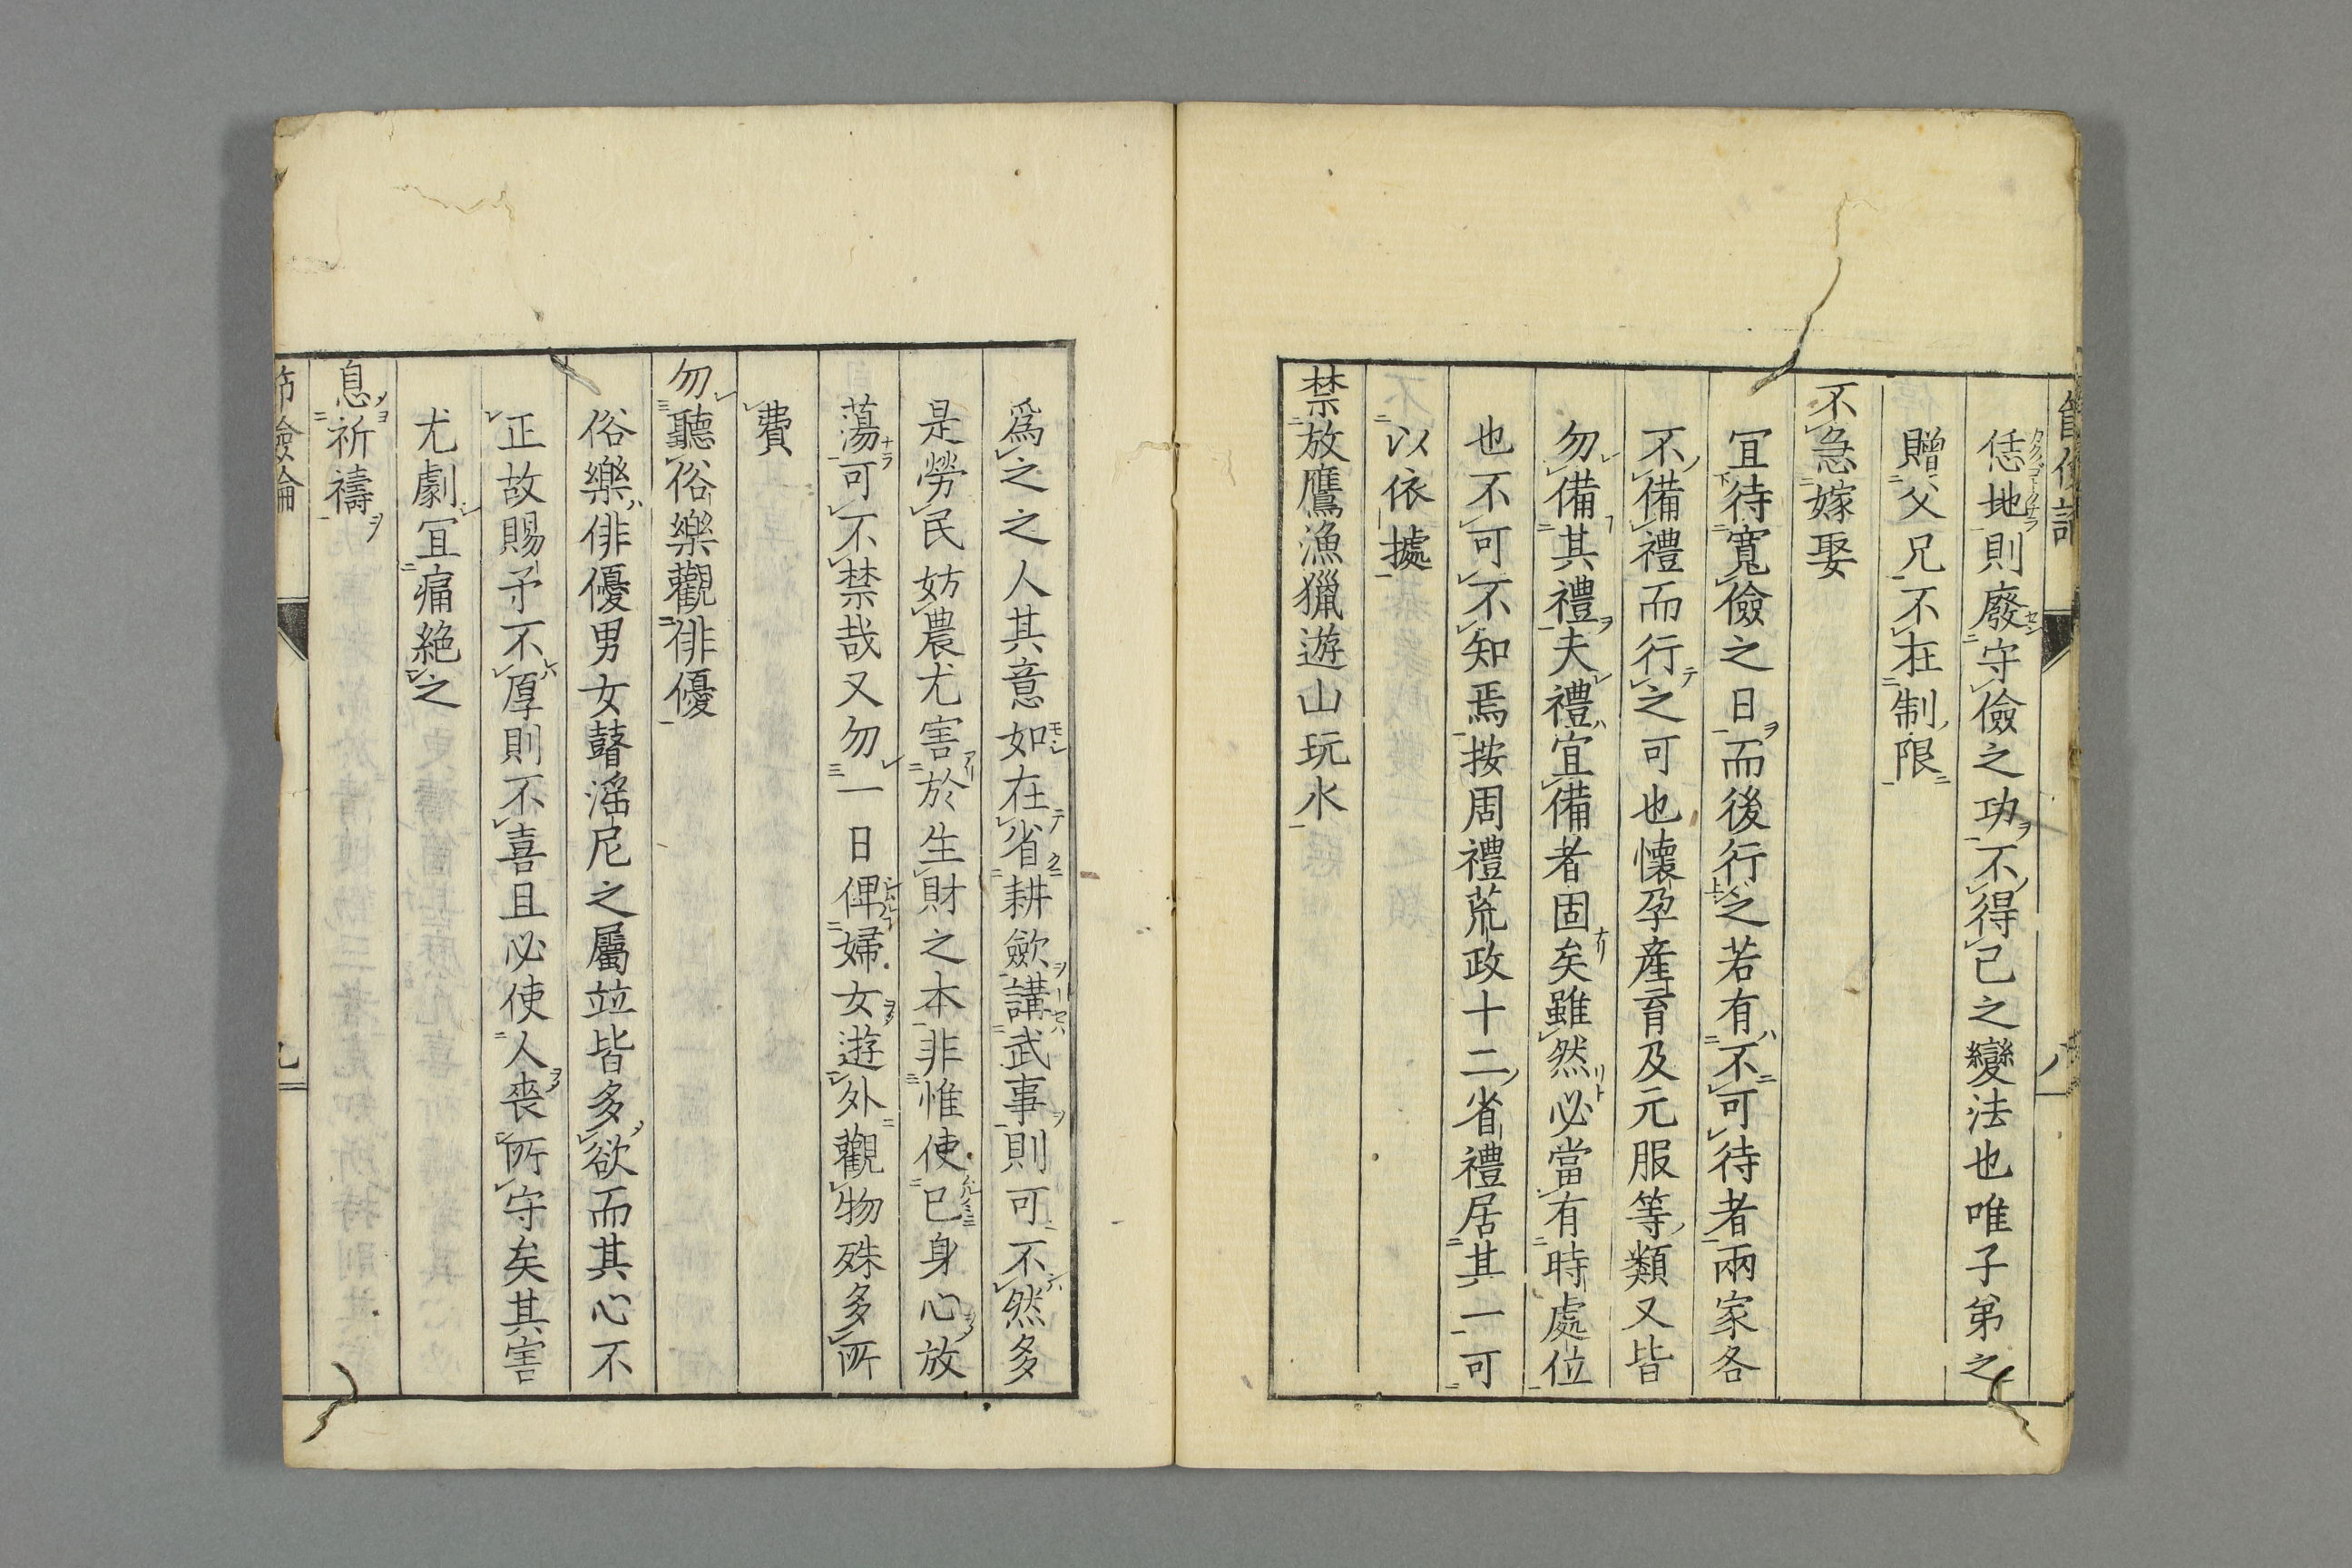 恁地則廢守儉之功不得已之變法也唯子第之
贈父兄不在制限
不急嫁娶
宜待寬儉之日而後行之若有不可待者兩家各
不備禮而行之可也懷孕產育及元服等類又皆
勿備其禮夫禮宜備者固矣雖然必當有時處位
也不可不知焉按周禮荒政十二省禮居其一可
以依據
禁放鷹漁獵遊山玩水
爲之之人其意如在省耕歛講武事則可不然多
是勞民妨農尤害於生財之本非惟使已身心放
蕩可不禁哉又勿一日俾婦女遊外觀物殊多所
費
勿聽俗樂觀俳優
俗樂俳優男女瞽滛尼之屬竝皆多欲而其心不
正故賜予不厚則不喜且必使人喪所守矣其害
尤劇宜痛絕之
息祈禱
節儉論